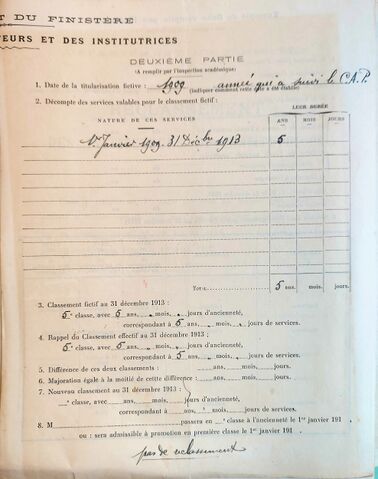 T DU FINISTÈRE
TEURS ET DES INSTITUTRICES
DEUXIÈME PARTIE
(A remplir par l'inspection académique)
1. Date de la titularisation fictive : 1909 année qui a suivi le C.A.P.
(indiquer comment cette date a été établie)
2. Décompte des services valables pour le classement fictif :
NATURE DE CES SERVICES
LEUR DURÉE
ANS MOIS JOURS
1er Janvier 1909. 31 Décbre 1913 5
TOTAL 5 ans. mois. jours.
3. Classement fictif au 31 décembre 1913 :
5e classe, avec 5 ans, . mois, . jours d'ancienneté,
correspondant à 5 ans, . mois, . jours de services.
4. Rappel du Classement effectif au 31 décembre 1913 :
5e classe, avec 5 ans, . mois, . jours d'ancienneté,
correspondant à 5 ans, . mois, . jours de services.
5. Différence de ces deux classements : ans, mois, jours.
6. Majoration égale à la moitié de cette différence : ans, mois, jours.
7. Nouveau classement au 31 décembre 1913 :
e classe, avec ans, mois, jours d'ancienneté,
correspondant à ans, mois, jours de services.
8. M passera en e classe à l'ancienneté le 1er janvier 191
ou : sera admissible à promotion en première classe le 1er janvier 191 .
pas de reclassement